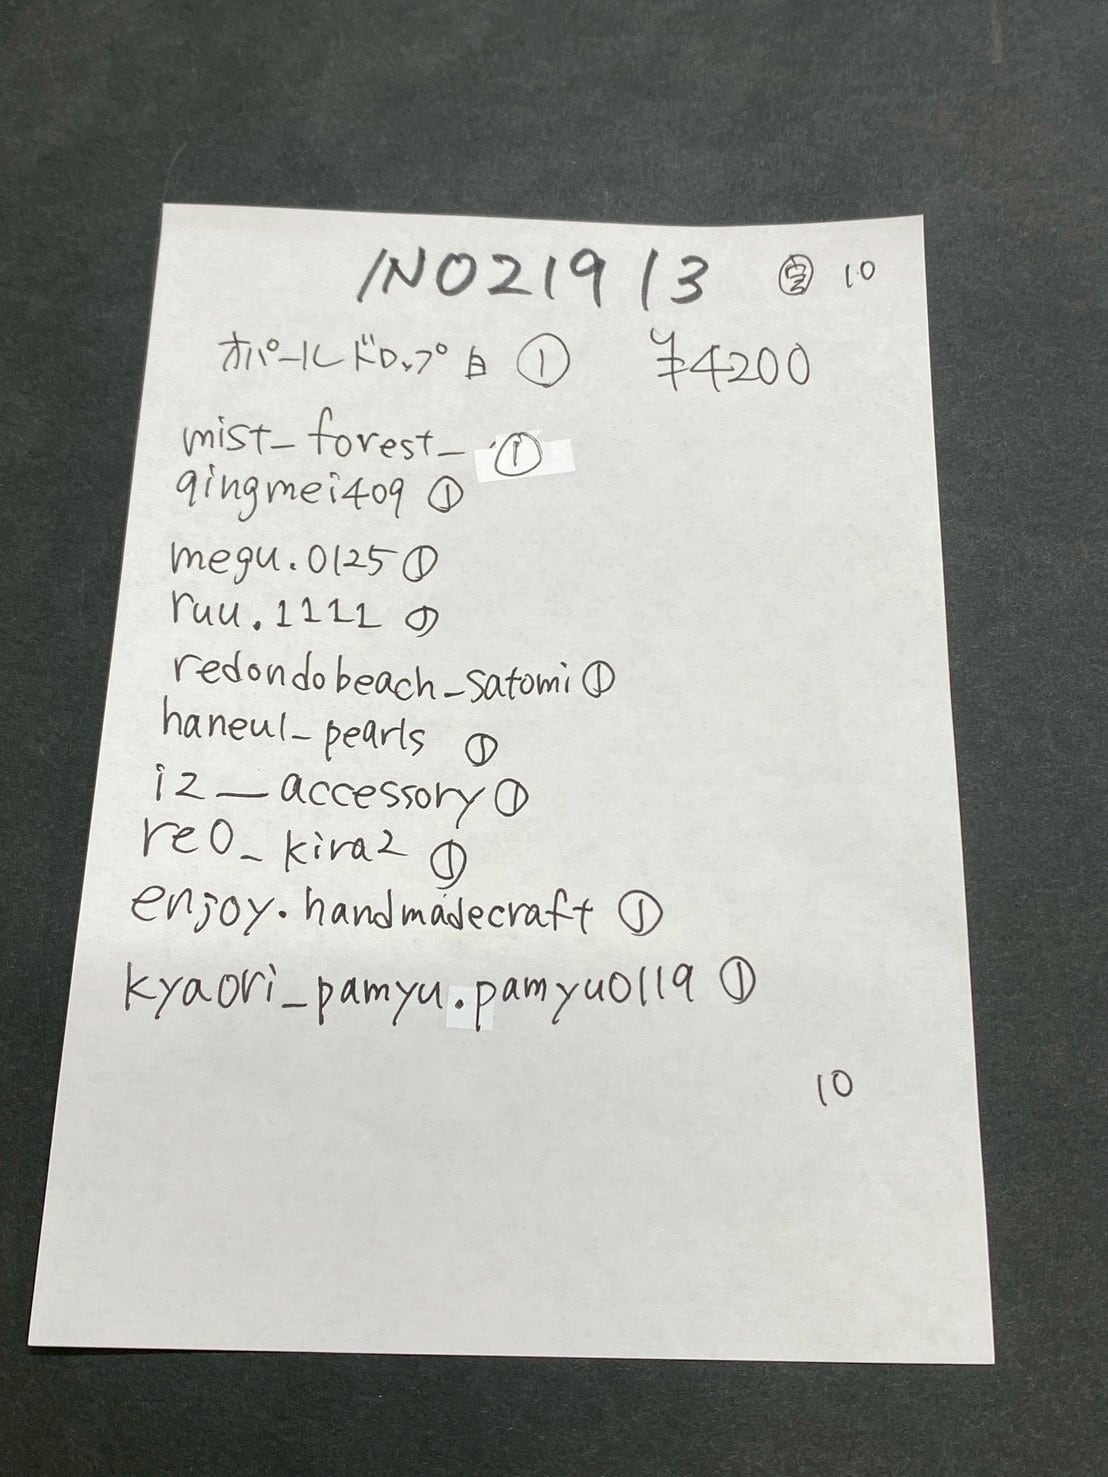 INO219 13 10
オパールドロップ白 ① ¥4200
mist_forest_ ①
qingmei409 ①
megu.0125 ①
ruu.1111 ①
redondobeach_satomi ①
haneul_pearls ①
i2__accessory ①
re0_kira2 ①
enjoy.handmadecraft ①
kyaori_pamyu.pamyu0119 ①
10